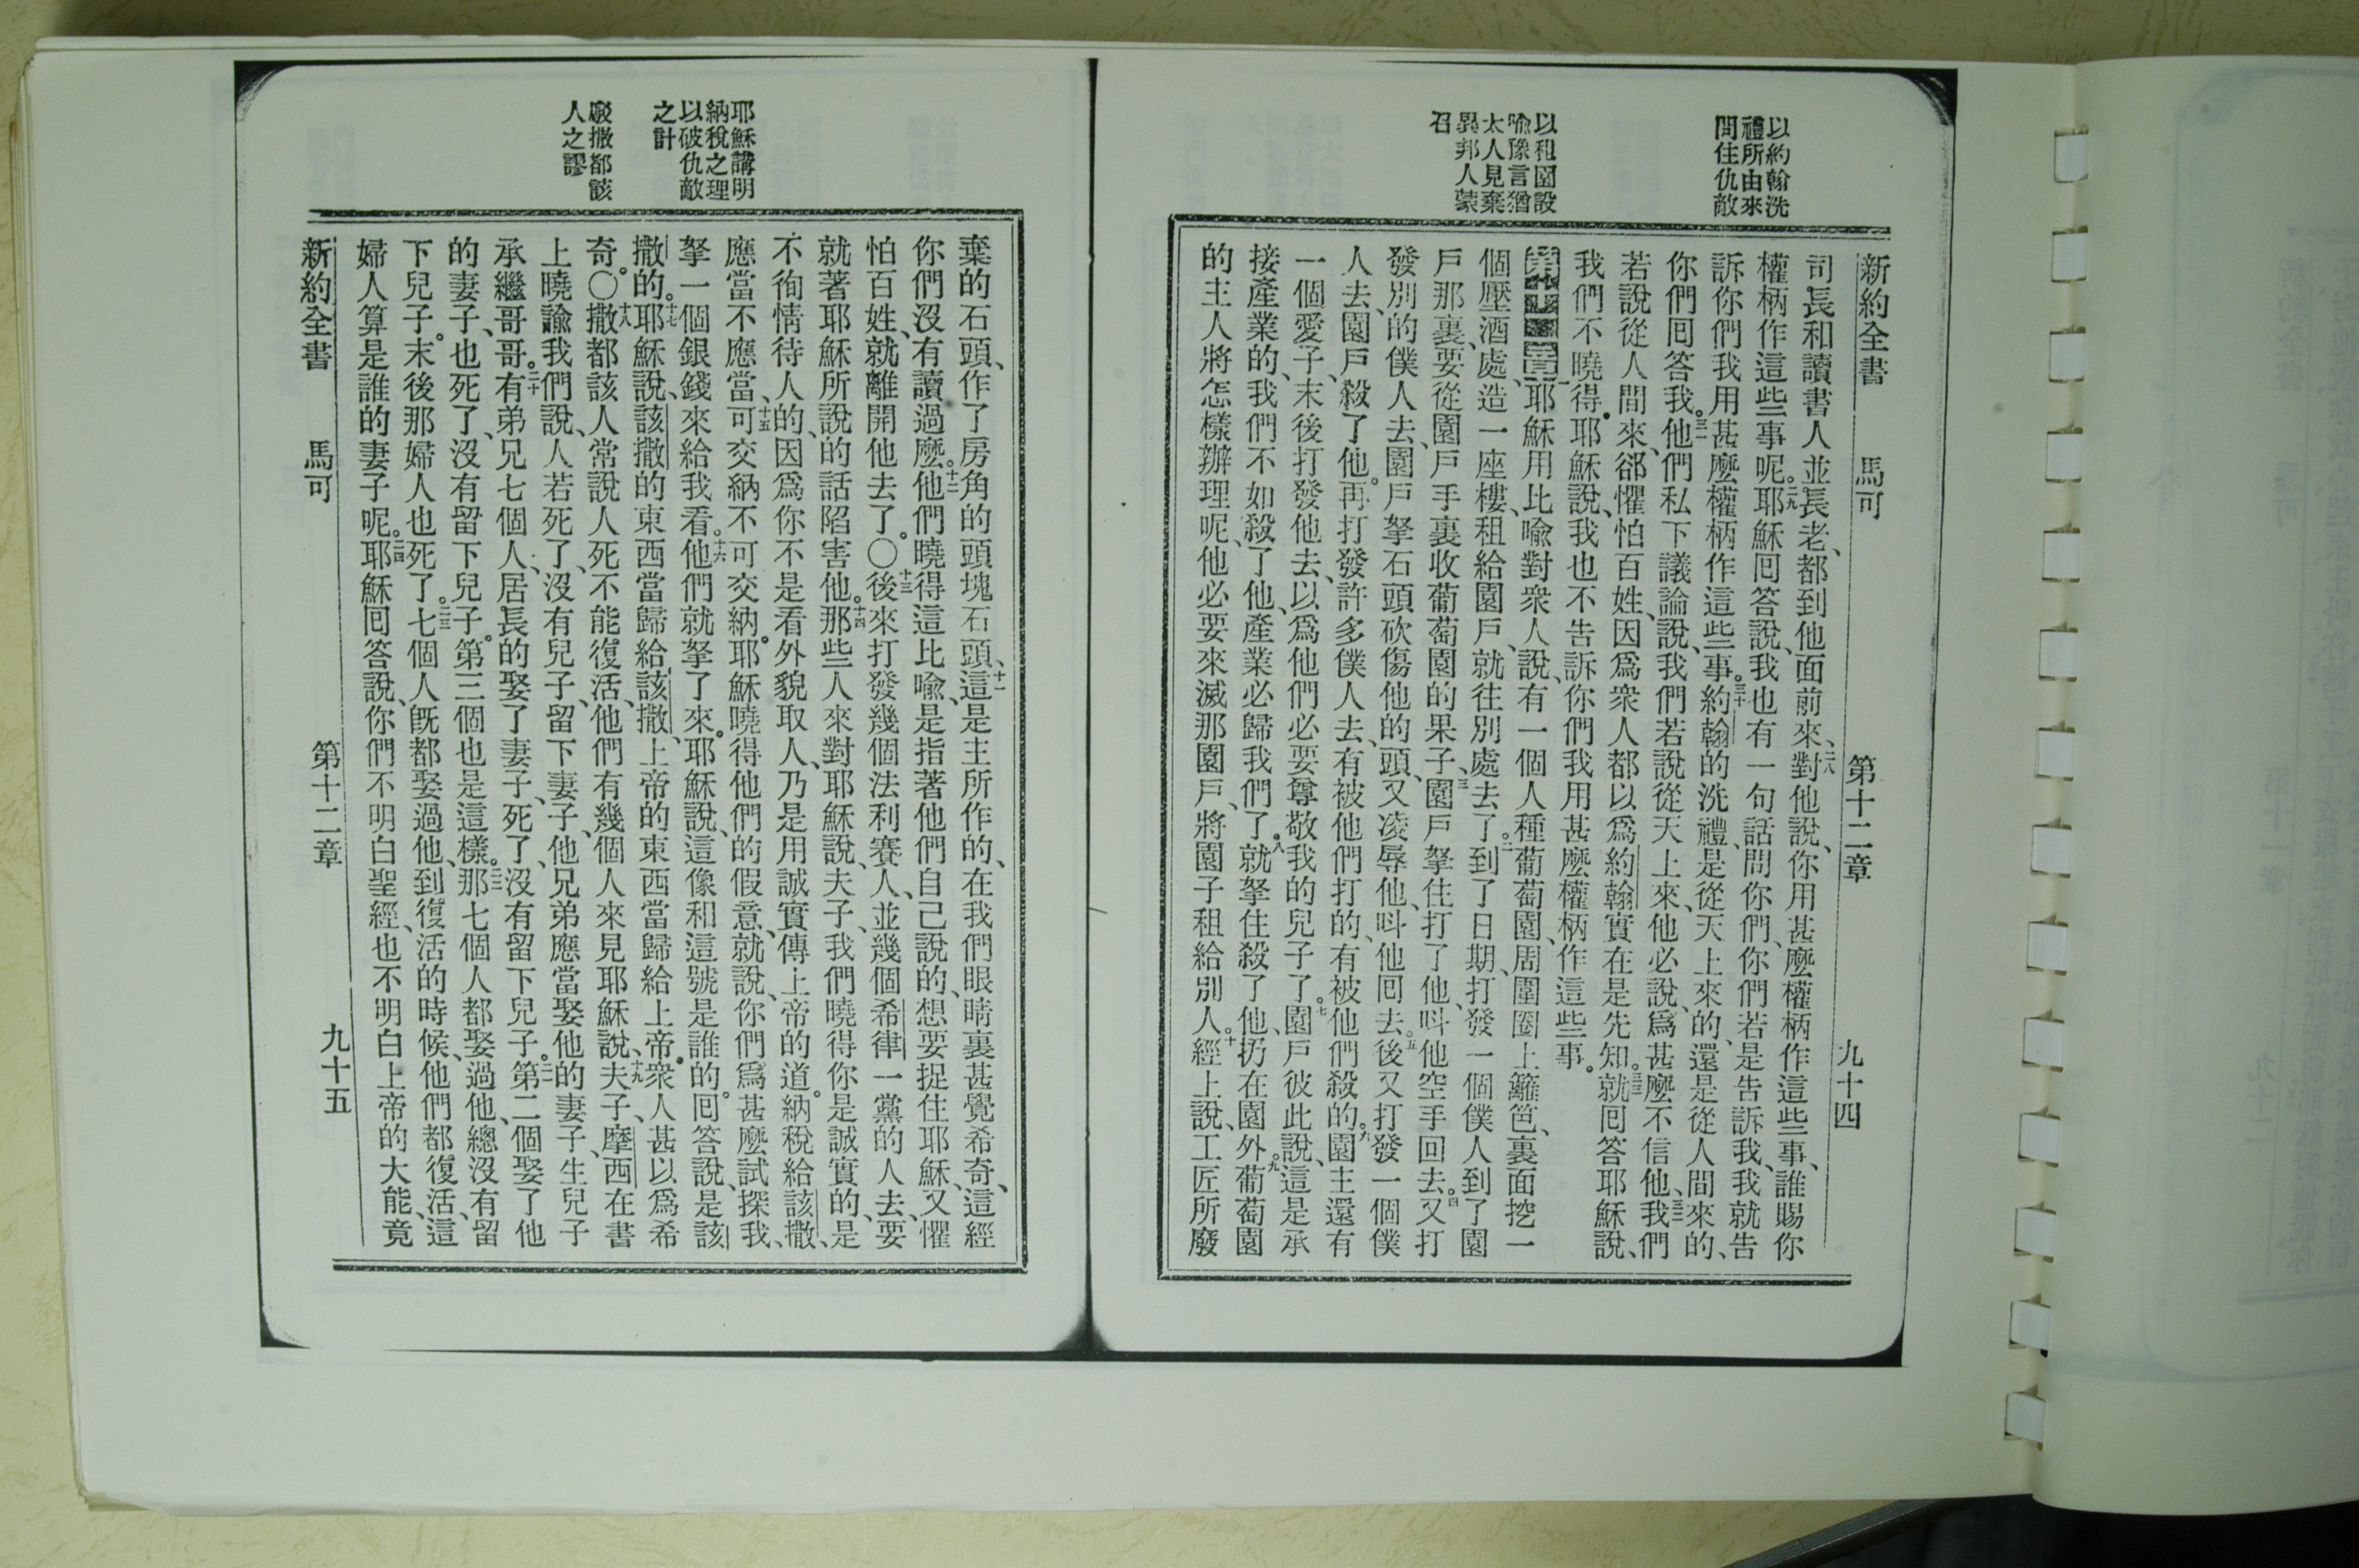 以約翰洗
禮所由來
問住仇敵
以租園設
喻豫言猶
太人見棄
異邦人蒙
召
新約全書 馬可 第十二章 九十四
司長和讀書人並長老、都到他面前來、二八對他說、你用甚麼權柄作這些事、誰賜你
權柄作這些事呢。二九耶穌回答說、我也有一句話問你們、你們若是告訴我、我就告
訴你們我用甚麼權柄作這些事。三十約翰的洗禮、是從天上來的、還是從人間來的、
你們回答我。三一他們私下議論說、我們若說從天上來、他必說、爲甚麼不信他、三二我們
若說從人間來、卻懼怕百姓、因爲衆人都以爲約翰實在是先知。三三就回答耶穌說、
我們不曉得。耶穌說、我也不告訴你們我用甚麼權柄作這些事。
第十二章一耶穌用比喻對衆人說、有一個人種葡萄園、周圍圈上籬笆、裏面挖一
個壓酒處、造一座樓、租給園戶、就往別處去了。二到了日期、打發一個僕人到了園
戶那裏、要從園戶手裏收葡萄園的果子、三園戶拏住打了他、呌他空手回去。四又打
發別的僕人去、園戶拏石頭砍傷他的頭、又凌辱他、呌他回去。五後又打發一個僕
人去、園戶殺了他。再打發許多僕人去、有被他們打的、有被他們殺的。六園主還有
一個愛子、末後打發他去、以爲他們必要尊敬我的兒子了。七園戶彼此說、這是承
接產業的、我們不如殺了他、產業必歸我們了。八就拏住殺了他、扔在園外。九葡萄園
的主人將怎樣辦理呢、他必要來滅那園戶、將園子租給別人。十經上說、工匠所廢
耶穌講明
納稅之理
以破仇敵
之計
駁撒都該
人之謬
棄的石頭、作了房角的頭塊石頭、十一這是主所作的、在我們眼睛裏甚覺希奇、這經
你們沒有讀過麼。十二他們曉得這比喻、是指著他們自己說的、想要捉住耶穌、又懼
怕百姓、就離開他去了。〇十三後來打發幾個法利賽人、並幾個希律一黨的人去、要
就著耶穌所說的話陷害他。十四那些人來對耶穌說、夫子、我們曉得你是誠實的、是
不徇情待人的、因爲你不是看外貌取人、乃是用誠實傳上帝的道。納稅給該撒、
應當不應當、十五可交納不可交納。耶穌曉得他們的假意、就說、你們爲甚麼試探我、
拏一個銀錢來給我看。十六他們就拏了來。耶穌說、這像和這號是誰的。回答說、是該
撒的。十七耶穌說、該撒的東西當歸給該撒、上帝的東西當歸給上帝。衆人甚以爲希
奇。〇十八撒都該人常說人死不能復活、他們有幾個人來見耶穌說、十九夫子、摩西在書
上曉諭我們說、人若死了、沒有兒子、留下妻子、他兄弟應當娶他的妻子、生兒子
承繼哥哥。二十有弟兄七個人、居長的娶了妻子、死了、沒有留下兒子。二一第二個娶了他
的妻子、也死了、沒有留下兒子。第三個也是這樣。二二那七個人都娶過他、總沒有留
下兒子。末後那婦人也死了。二三七個人旣都娶過他、到復活的時候、他們都復活、這
婦人算是誰的妻子呢。二四耶穌回答說、你們不明白聖經、也不明白上帝的大能、竟
新約全書 馬可 第十二章 九十五